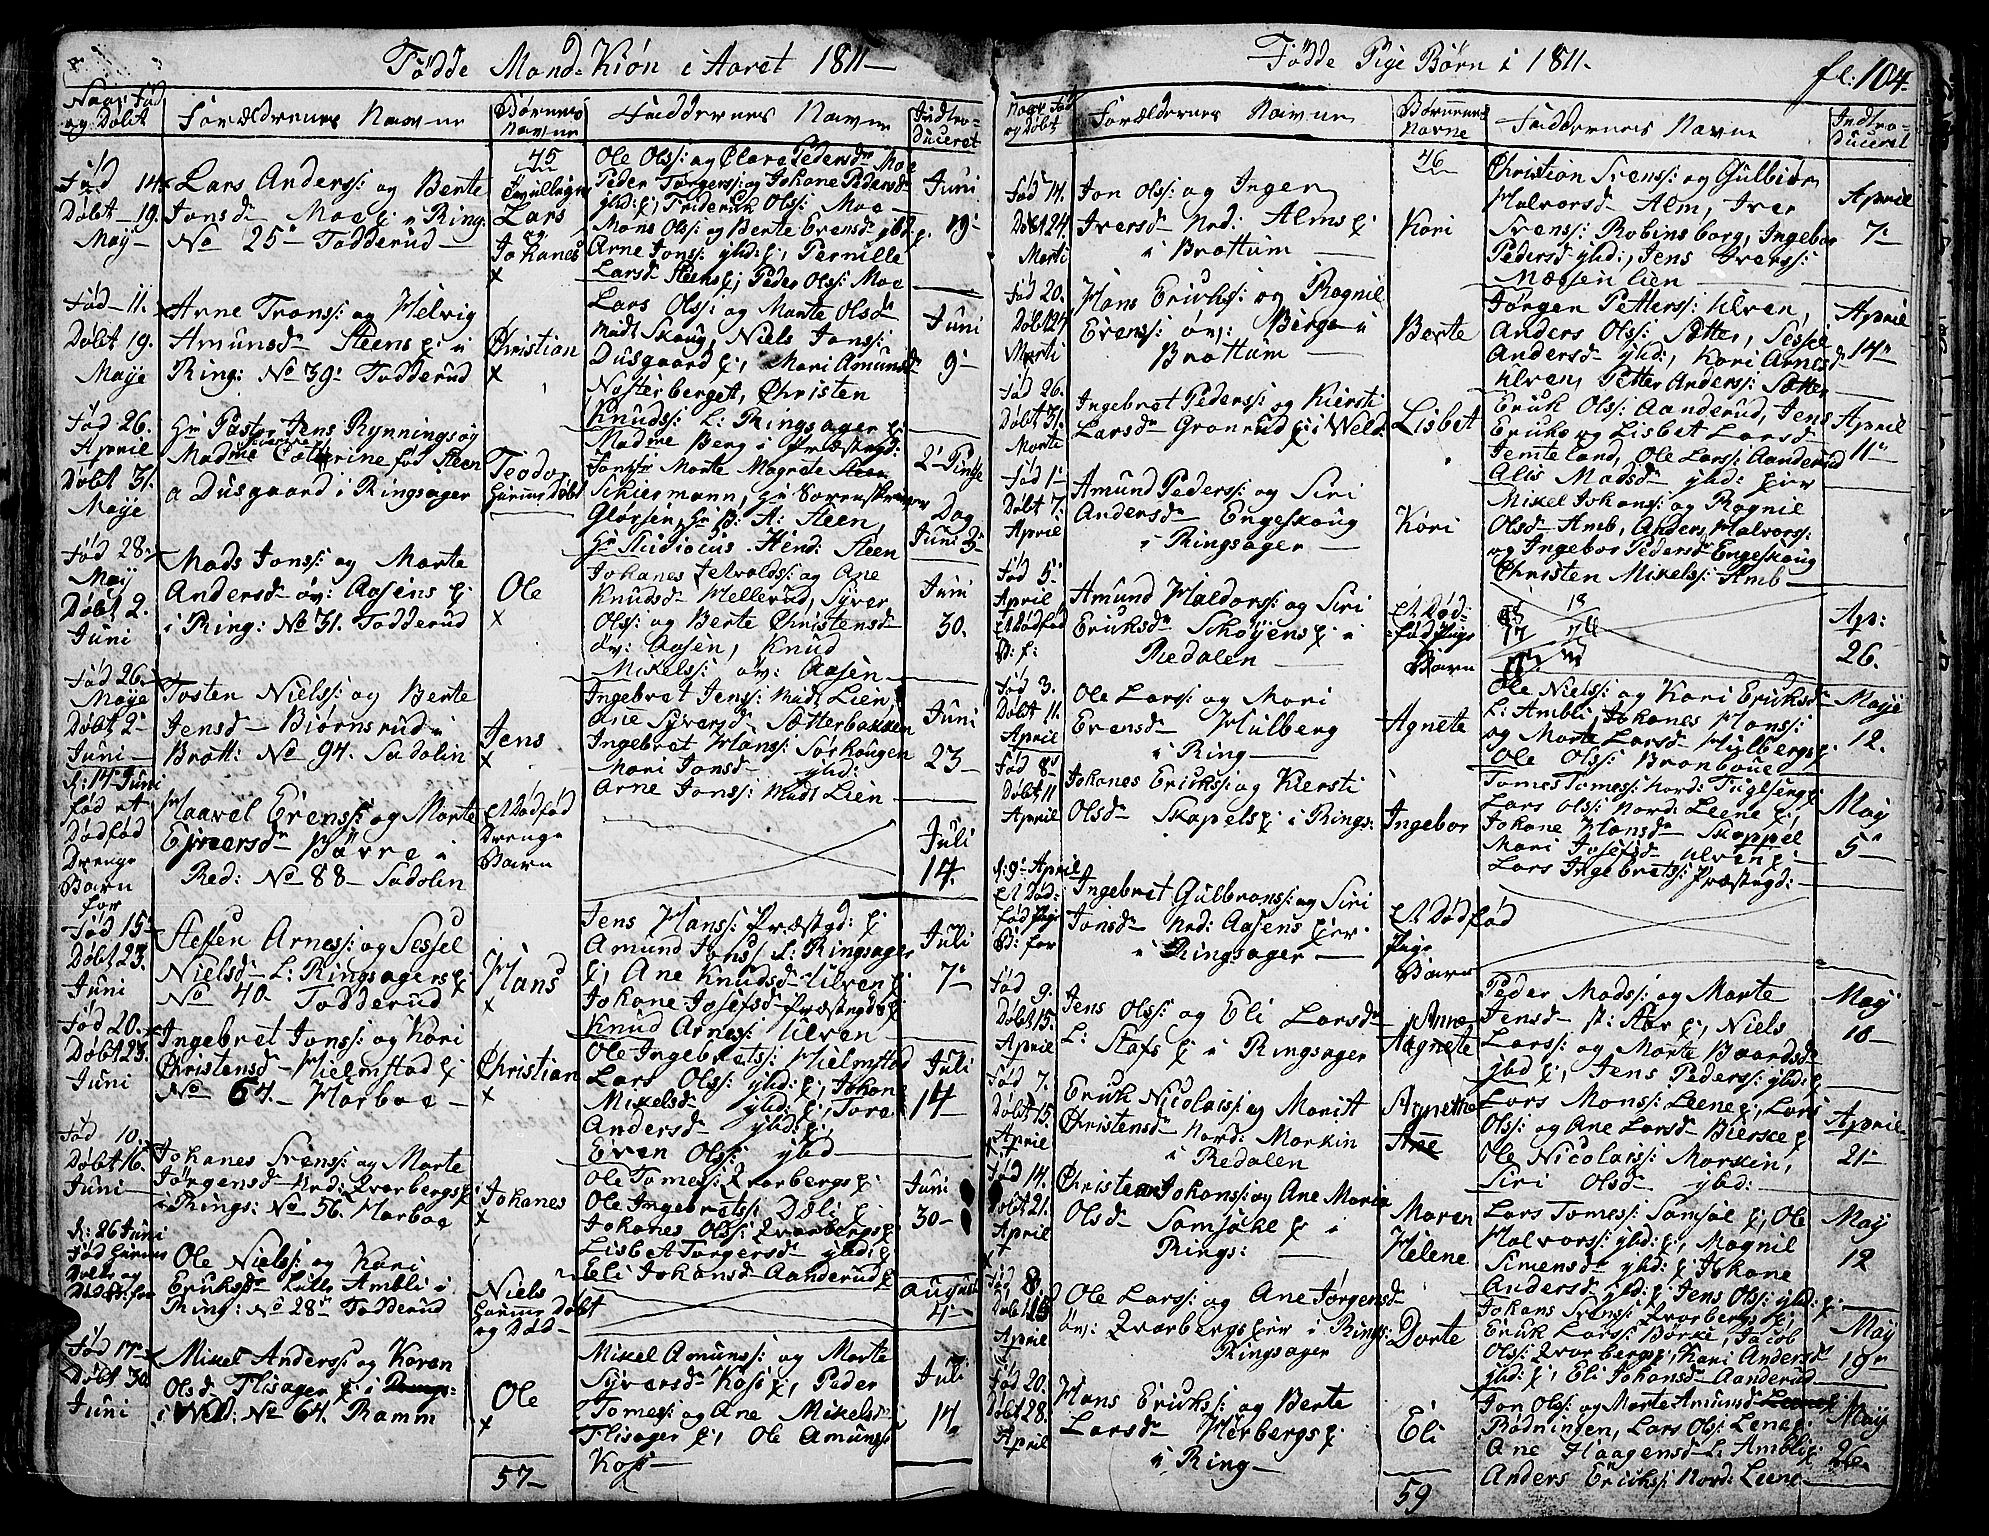 Fødde Mand-Kiøn i Aaret 1811—
Naar Fød og Døbt
Forældrenes Navne
Børnenes Navne
Faddernes Navne
Indtroduceret
45
Fød 14
Døbt 19.
Maij
Lars Anderss: og Berte
Jonsd. Moe p: i Ring:
No 25 Fodderud
Tvillinger
Lars
og
Johanes
Ole Olss: og Clare Pedersd. Moe
Peder Torgerss: og Johane Pedersd.
ybd: p:, Friderik Olss: Moe
Mons Olss: og Berte Evensd. ybd. p.
Arne Jonss: ybd: p:, Pernille
Larsd. Steens p:, Peder Olss: Moe
Juni
19
Fød 11.
Døbt 19.
Maye
Arne Tronss: og Helvig
Amunsd. Steens p: i
Ring: No 39: Fodderud
Christian
Lars Olss: og Marte Olsd.
Madt Skoug, Niels Jonss:
Dusgaard p:, Mari Amunsd.
Nosterberget, Christen
Knudss: L: Ringsager p:
Juni
9
Fød 26.
April
Døbt 31.
Maye
Hr Pastor Jens Rynning og
Madme Cathrine fød Steen
a Dusgaard i Ringsager
Teodor
hieme Døbt
Madme Berg i Præstegd:
Jomfr Marte Magrete
Schiermann, Hr Sorenskriver
Glørsen, Hr B: A: Steen,
Hr Studiosus Hend: Steen
2 Pintse
Dag
Juni 3
Fød 28:
Maij
Døbt 2.
Juni
Mads Jonss: og Marte
Andersd. öv: Aasens p:
i Ring: No 31. Fodderud
Ole
Johanes Tetvoldss: og Ane
Knudsd. Hellerud, Syver
Olss: og Berte Christensd.
öv: Aasen, Knud
Mikelss: öv: Aasen
Juni
30.
Fød 26.
Maye
Døbt 2
Juni
Tosten Nielss: og Berte
Jensd. Biørnsrud i
Brøtt: No 94. Sadolin
Jens
Ingebret Jenss: Madt Lien,
Ane Syversd. Sætterbakken
Ingebret Hanss: Sørskougen
Mari Jonsd. ybd:
Arne Jonss: Madt Lien
Juni
23
d: 14 Juni
fød et
Dødfød
Drenge
Barn
for
Haavel Evenss: og Marte
Ejnersd. Børre i
Red: No 88 Sadolin
et Dødfød
Drenge
Barn
Juli
14.
Fød 15
Døbt 23.
Juni
Steffen Arness: og Sessel
Nielsd. L: Ringsagers p:
No 40. Fodderud
Hans
Jens Hanss: Præstegd: p:
Amund Jonss: L: Ringsager
p:, Ane Knudsd. Ulven p:
Johane Josefsd. Præstegds p:
Knud Arness: Ulven
Juli
7
Fød 20.
Døbt 23.
Juni
Ingebret Jonss: og Kari
Christensd. Hielmstad p:
No 64. Harboe
Christian
Ole Ingebretss: Hielmstad
Lars Olss: ybd: p:, Johane
Mikelsd. ybd: p:, Tore
Andersd. ybd: p:,
Even Olss: ybd
Juli
14
Fød 10.
Døbt 16.
Juni
Johanes Svenss: og Marte
Jörgensd. Nrd: Qvarbergs p:
i Rings: No 56. Harboe
Johanes
Ole Tomess: Qvarbergs p:
Ole Ingebretss: Dæli p:
Johanes Olss: Qvarbergs p:
Lisbet Torgersd. ybd: p:
Eli Johansd. Aanderud p:
Juni
30
d: 26 Juni
Fød hieme
Døbt og
Død for
Ole Nielss: og Kari
Eriksd. Lille Ambli i
Ring: No 28 Fodderud
Niels
hieme Døbt
og Død
August
4
Fød 17
Døbt 30
Juni
Mikel Anderss: og Karen
Olsd. Flisager p: i
i Veld: No 64. Ramm
Ole
Mikel Amunss: og Marte
Syversd. Koss p:, Peder
Tomess: og Ane Mikelsd.
Flisager p:, Ole Amunss:
Koss
Juli
14
57
Fødde Pige Børn i 1811.
fl: 104.
Naar Fød og Døbt
Forældrenes Navne
Børnenes Navne
Faddernes Navne
Indtroduceret
46
Fød 14.
Døbt 24.
Marti
Jon Olss: og Inger
Iversd. Nrd: Alms p:
i Brøttum
Kari
Christian Svenss: og Gulbiør
Halvorsd. Alm, Iver
Svenss: Robinsborg, Ingebor
Pedersd. ybd:, Jens Iverss:
Mæssenlien
April
7
Fød 20.
Døbt 24
Marti
Hans Erikss: og Rognil
Evenss: öv: Berge i
Brøttum
Berte
Jørgen Petterss: Ulven,
Anders Olss: Sætter, Sessel
Andersd. ybd:, Kari Arnesd.
Ulven, Petter Anderss: Sætter
April
14
Fød 26.
Døbt 31.
Marte
Ingebret Pederss: og Kiersti
Larsd. Gronrud p: i Veld:
Lisbet
Erik Olss: Aanderud, Jens
Eriks. og Lisbet Larsd.
Jemteland, Ole Larss: Aanderud
Alis Madsd. ybd: p:
April
11
Fød 1
Døbt 7.
April
Amund Pederss: og Siri
Andersd. Engeskoug
i Ringsager
Kari
Mikel Johanss: og Rognil
Olsd. Amb, Anders Halvorss:
og Ingebor Pedersd. Engeskoug
Christen Mikelss: Amb
Fød 5
April
et Dødfød
B: f:
Amund Haldorss: og Siri
Eriksd. Schøyens p: i
Redalen
et Død:
fød Pige
Barn
Ap:
26.
Fød 3.
Døbt 11.
April
Ole Larss: og Mari
Evensd. Hulberg
i Ring
Agnete
Ole Nielss: og Kari Eriksd.
L: Ambli, Johanes Hanss:
og Marte Larsd. Hulbergs p:
Ole Olss: Bronboue
Maye
12.
Fød 8
Døbt 11
April
Johanes Erikss: og Kiersti
Olsd. Skapels p: i Rings:
Ingebor
Tomes Tomess: Nord: Fuglseng p:
Lars Olss: Nord: Leene p:,
Johane Hansd. Skappel
Mari Josefsd. Ulven p:
Lars Ingebretss: Præstegd:
May
5
d: 9 April
et Død:
fød Pige
B: for
Ingebret Gulbranss: og Siri
Jonsd. Nrd: Aasens p:
i Ringsager
et Dødfød
Pige
Barn
Fød 9.
Døbt 15.
April
Jens Olss: og Eli Larsd.
L: Stafs p: i Ringsager
Agnete
Peder Madss: og Marte
Jensd. N: Aar p:, Niels
Larss: og Marte Baardsd.
ybd p:, Jens Pederss: ybd: p:
May
10
Fød 7.
Døbt 15.
April
Erik Nicolaiss: og Marit
Christensd. Nord: Morkin
i Redalen
Agnethe
Ane
Lars Monss: Leene p:, Lars
Olss: og Ane Larsd. Bierke p:
Ole Nicolaiss: Morkin,
Siri Olsd. ybd:
April
21
Fød 14.
Døbt 21.
April
Christen Johanss: og Ane Maria
Olsd. Samsöke p: i
Rings:
Maren
Helene
Lars Tomess: Samsöe p:, Ole
Halvorss: ybd: p:, Magnil
Simensd. ybd: p: Johane
Andersd. ybd: p:, Jens Olss: ybd: p:
May
12
Fød 8
Døbt 15
April
Ole Larss: og Ane Jørgensd.
öv: Qvarbergs p: i Rings:
Ringsager
Dorte
Johans Svenss: Qvarbergs p:,
Erik Larss: Børke, Jacob
Olss: Qvarbergs p:, Kari Andersd.
ybd: p:, Eli Johansd. Aanderud
May
19
Fød 20.
Døbt 28.
April
Hans Erikss: og Berte
Larsd. Herbergs p:
i Ring
Eli
Jon Olss: og Marte Amunsd.
Rødningen, Lars Olss: Lene p:
Ane Haagensd. L: Ambli p:
Anders Erikss: Nord: Leene
May
26
59